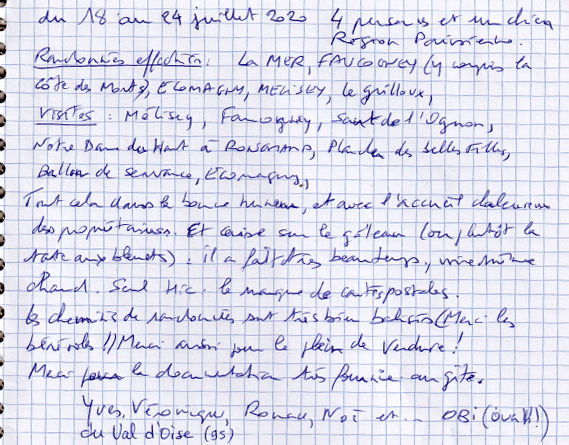 du 18 au 24 juillet 2020 4 personnes et un chien
Région Parisienne.
Randonnées effectuées : La MER, FAUCOGNEY (y compris la
côte des Monts), ECOMAGNY, MELISEY, le grilloux,
Visites : Mélisey, Faucogney, Saut de l'Ognon,
Notre Dame du Haut à RONCHAMP, Planche des belles Filles,
Ballon de servance, Ecomagny.,
Tout cela dans la bonne humeur, et avec l'accueil chaleureux
des propriétaires. Et cerise sur le gâteau (ou plutôt la
tarte aux bleuets) : il a fait très beau temps, voire même
chaud. Seul Hic : le manque de cartes postales.
Les chemins de randonnées sont très bien balisés (Merci les
bénévoles !) Merci aussi pour le plein de verdure !
Merci pour la documentation très fournie au gîte.
Yves, Véronique, Ronan, Noé et ... OBi (ouah!)
du Val d'Oise (95)